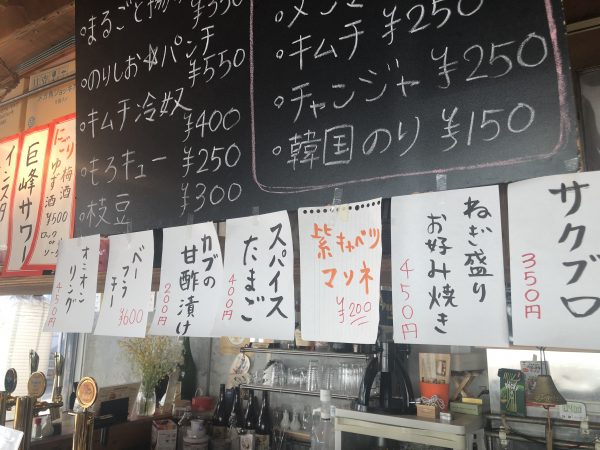 まるごと
¥550
のりしお☆パンチ
¥550
キムチ冷奴
¥400
もろキュー ¥250
枝豆 ¥300
¥250
キムチ ¥250
チャンジャ ¥250
韓国のり ¥150
インスタ
巨峰サワー
にごり梅酒
ゆず酒
¥500
ロック
オニオン
リング
450円
ベーコン
¥600
カブの
甘酢漬け
200円
スパイス
たまご
400円
紫キャベツ
マリネ
¥200
ねぎ盛り
お好み焼き
450円
サクブロ
350円